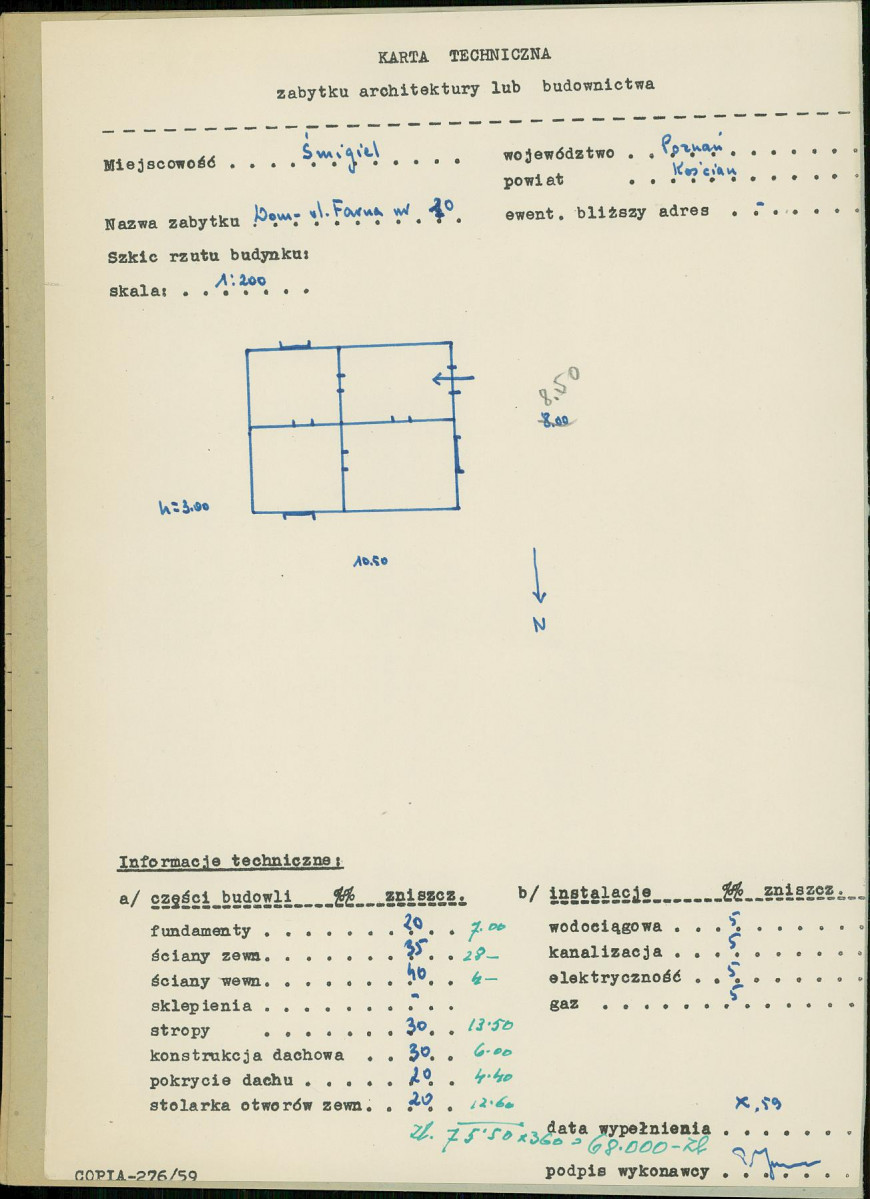 KARTA TECHNICZNA
zabytku architektury lub budownictwa
Miejscowość . . . . Śmigiel . . . . województwo . . Poznań . . . . . .
powiat . . Kościan . . . . . .
Nazwa zabytku Dom - ul. Farna nr 20 ewent. bliższy adres . - . . . . .
Szkic rzutu budynku:
skala: . . 1:200 . . .
8.50
8.00
h=3.00
10.50
N
Informacje techniczne:
a/ części budowli %% zniszcz. b/ instalacje %% zniszcz.
fundamenty . . . . . . . 20 . . 7.00 wodociągowa . . . 5 . . . . . .
ściany zewn. . . . . . . 35 . . 28 — kanalizacja . . . 5 . . . . . .
ściany wewn. . . . . . . 40 . . 4 — elektryczność . . 5 . . . . . .
sklepienia . . . . . . . - . . gaz . . . . . . 5 . . . . . .
stropy . . . . . . . 30 . . 13.50
konstrukcja dachowa . . 30 . . 6.00
pokrycie dachu . . . . . 20 . . 4.40
stolarka otworów zewn. . . 20 . . 12.60
X,59
data wypełnienia . . . . . .
zł. 75.50 x 360 = 68.000 - zł
podpis wykonawcy . . . . . .
COPIA-276/59